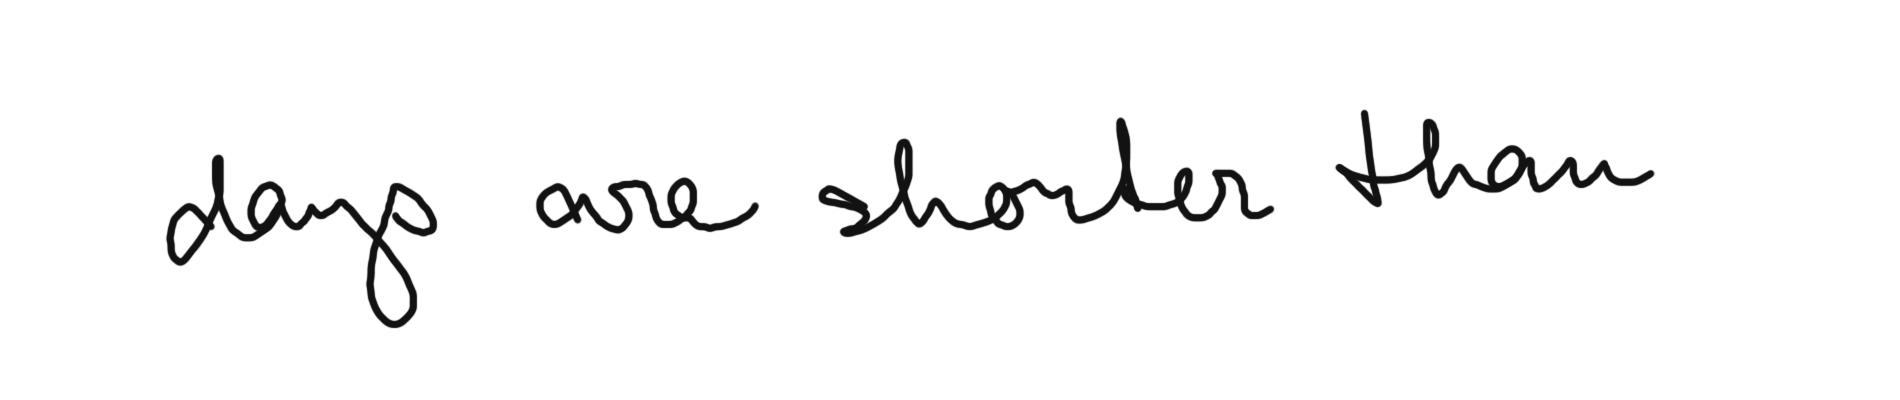 days are shorter than